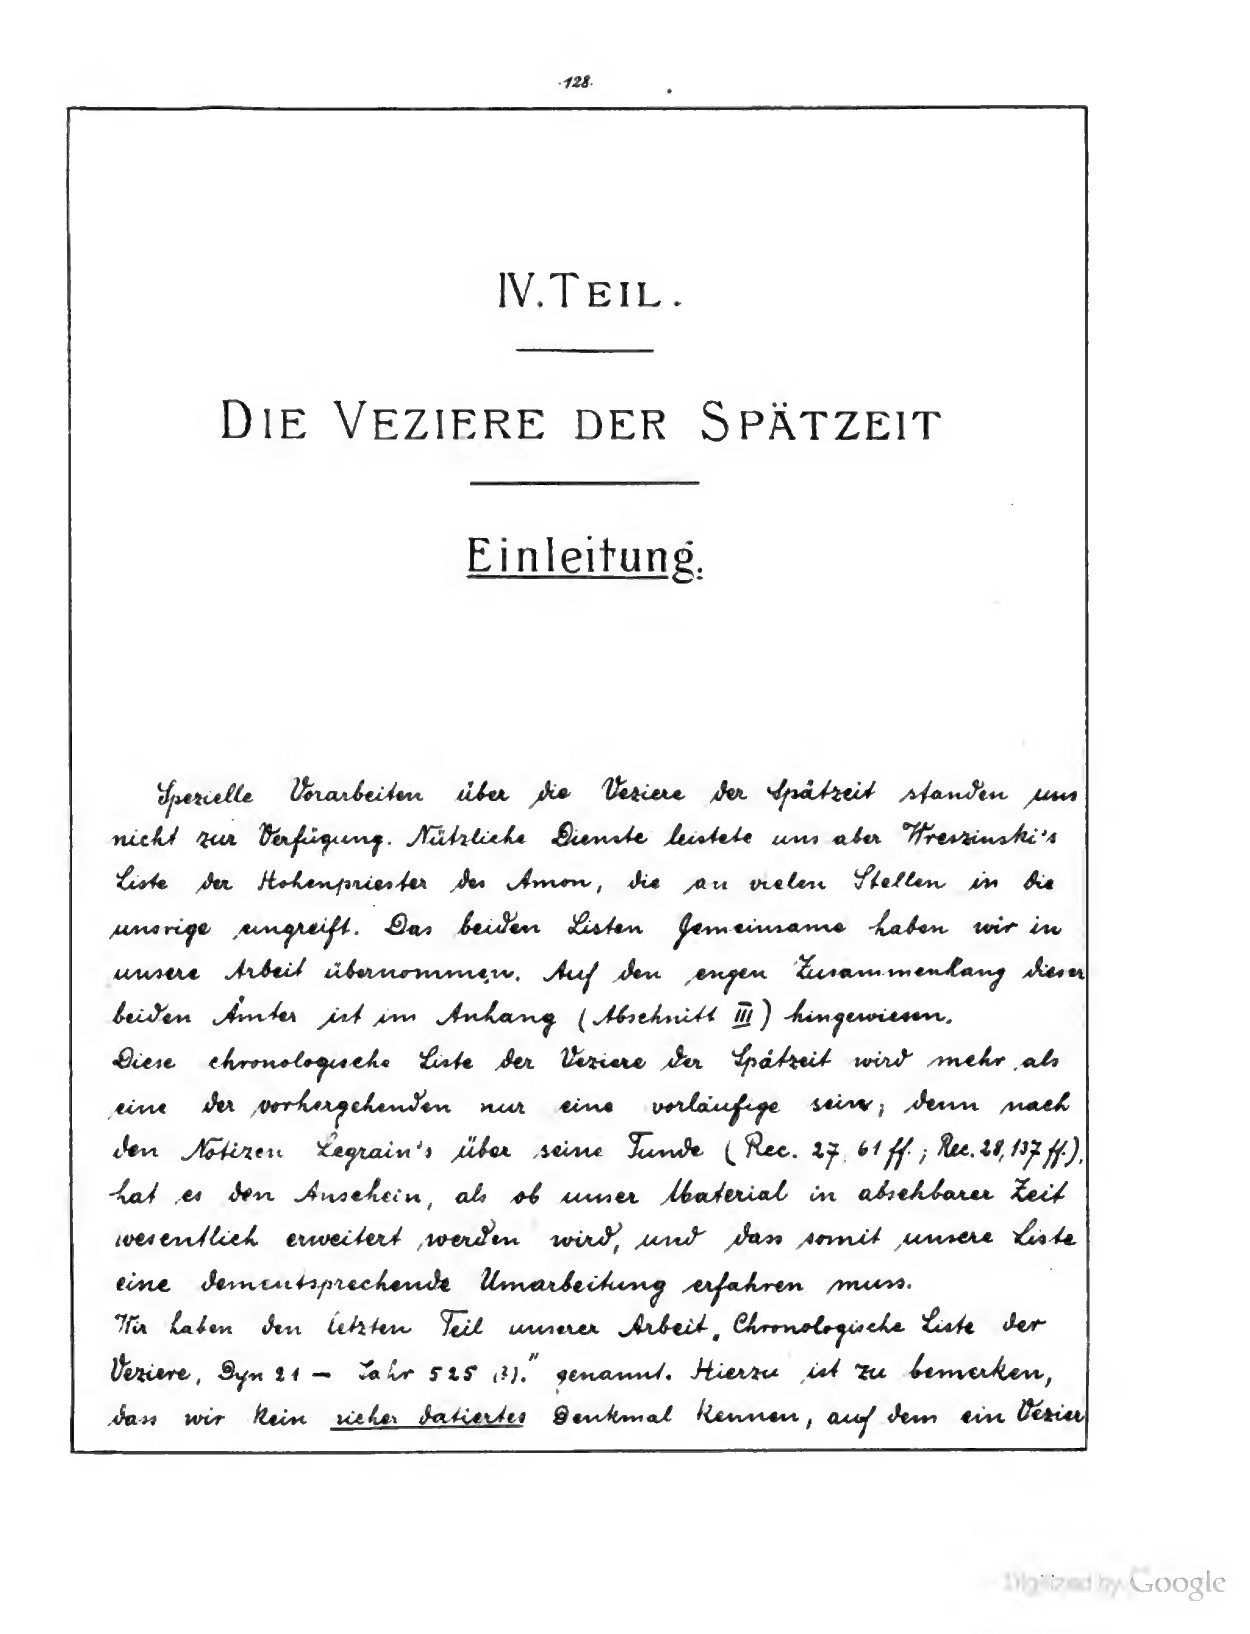 ·128·
IV. TEIL.
DIE VEZIERE DER SPÄTZEIT
Einleitung.
Spezielle Vorarbeiten über die Veziere der Spätzeit standen uns
nicht zur Verfügung. Nützliche Dienste leistete uns aber Wreszinski's
Liste der Hohenpriester des Amon, die an vielen Stellen in die
unsrige eingreift. Das beiden Listen Gemeinsame haben wir in
unsere Arbeit übernommen. Auf den engen Zusammenhang dieser
beiden Ämter ist im Anhang (Abschnitt III) hingewiesen.
Diese chronologische Liste der Veziere der Spätzeit wird mehr als
eine der vorhergehenden nur eine vorläufige sein; denn nach
den Notizen Legrain's über seine Funde (Rec. 27, 61 ff.; Rec. 28, 137 ff.),
hat es den Anschein, als ob unser Material in absehbarer Zeit
wesentlich erweitert werden wird, und dass somit unsere Liste
eine dementsprechende Umarbeitung erfahren muss.
Wir haben den letzten Teil unserer Arbeit „Chronologische Liste der
Veziere, Dyn 21 – Jahr 525 (?)." genannt. Hierzu ist zu bemerken,
dass wir kein sicher datiertes Denkmal kennen, auf dem ein Vezier
Digitized by Google